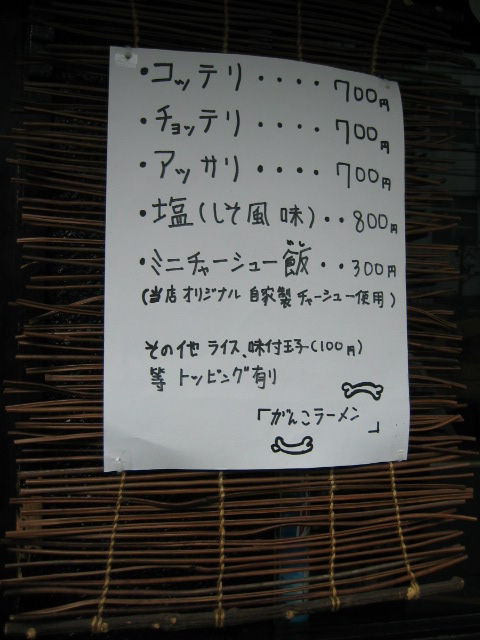 ・コッテリ・・・・700円
・チョッテリ・・・・700円
・アッサリ・・・・700円
・塩(しそ風味)・・800円
・ミニチャーシュー飯・・300円
(当店オリジナル 自家製チャーシュー使用)
その他 ライス、味付玉子(100円)
等 トッピング有り
「がんこラーメン」